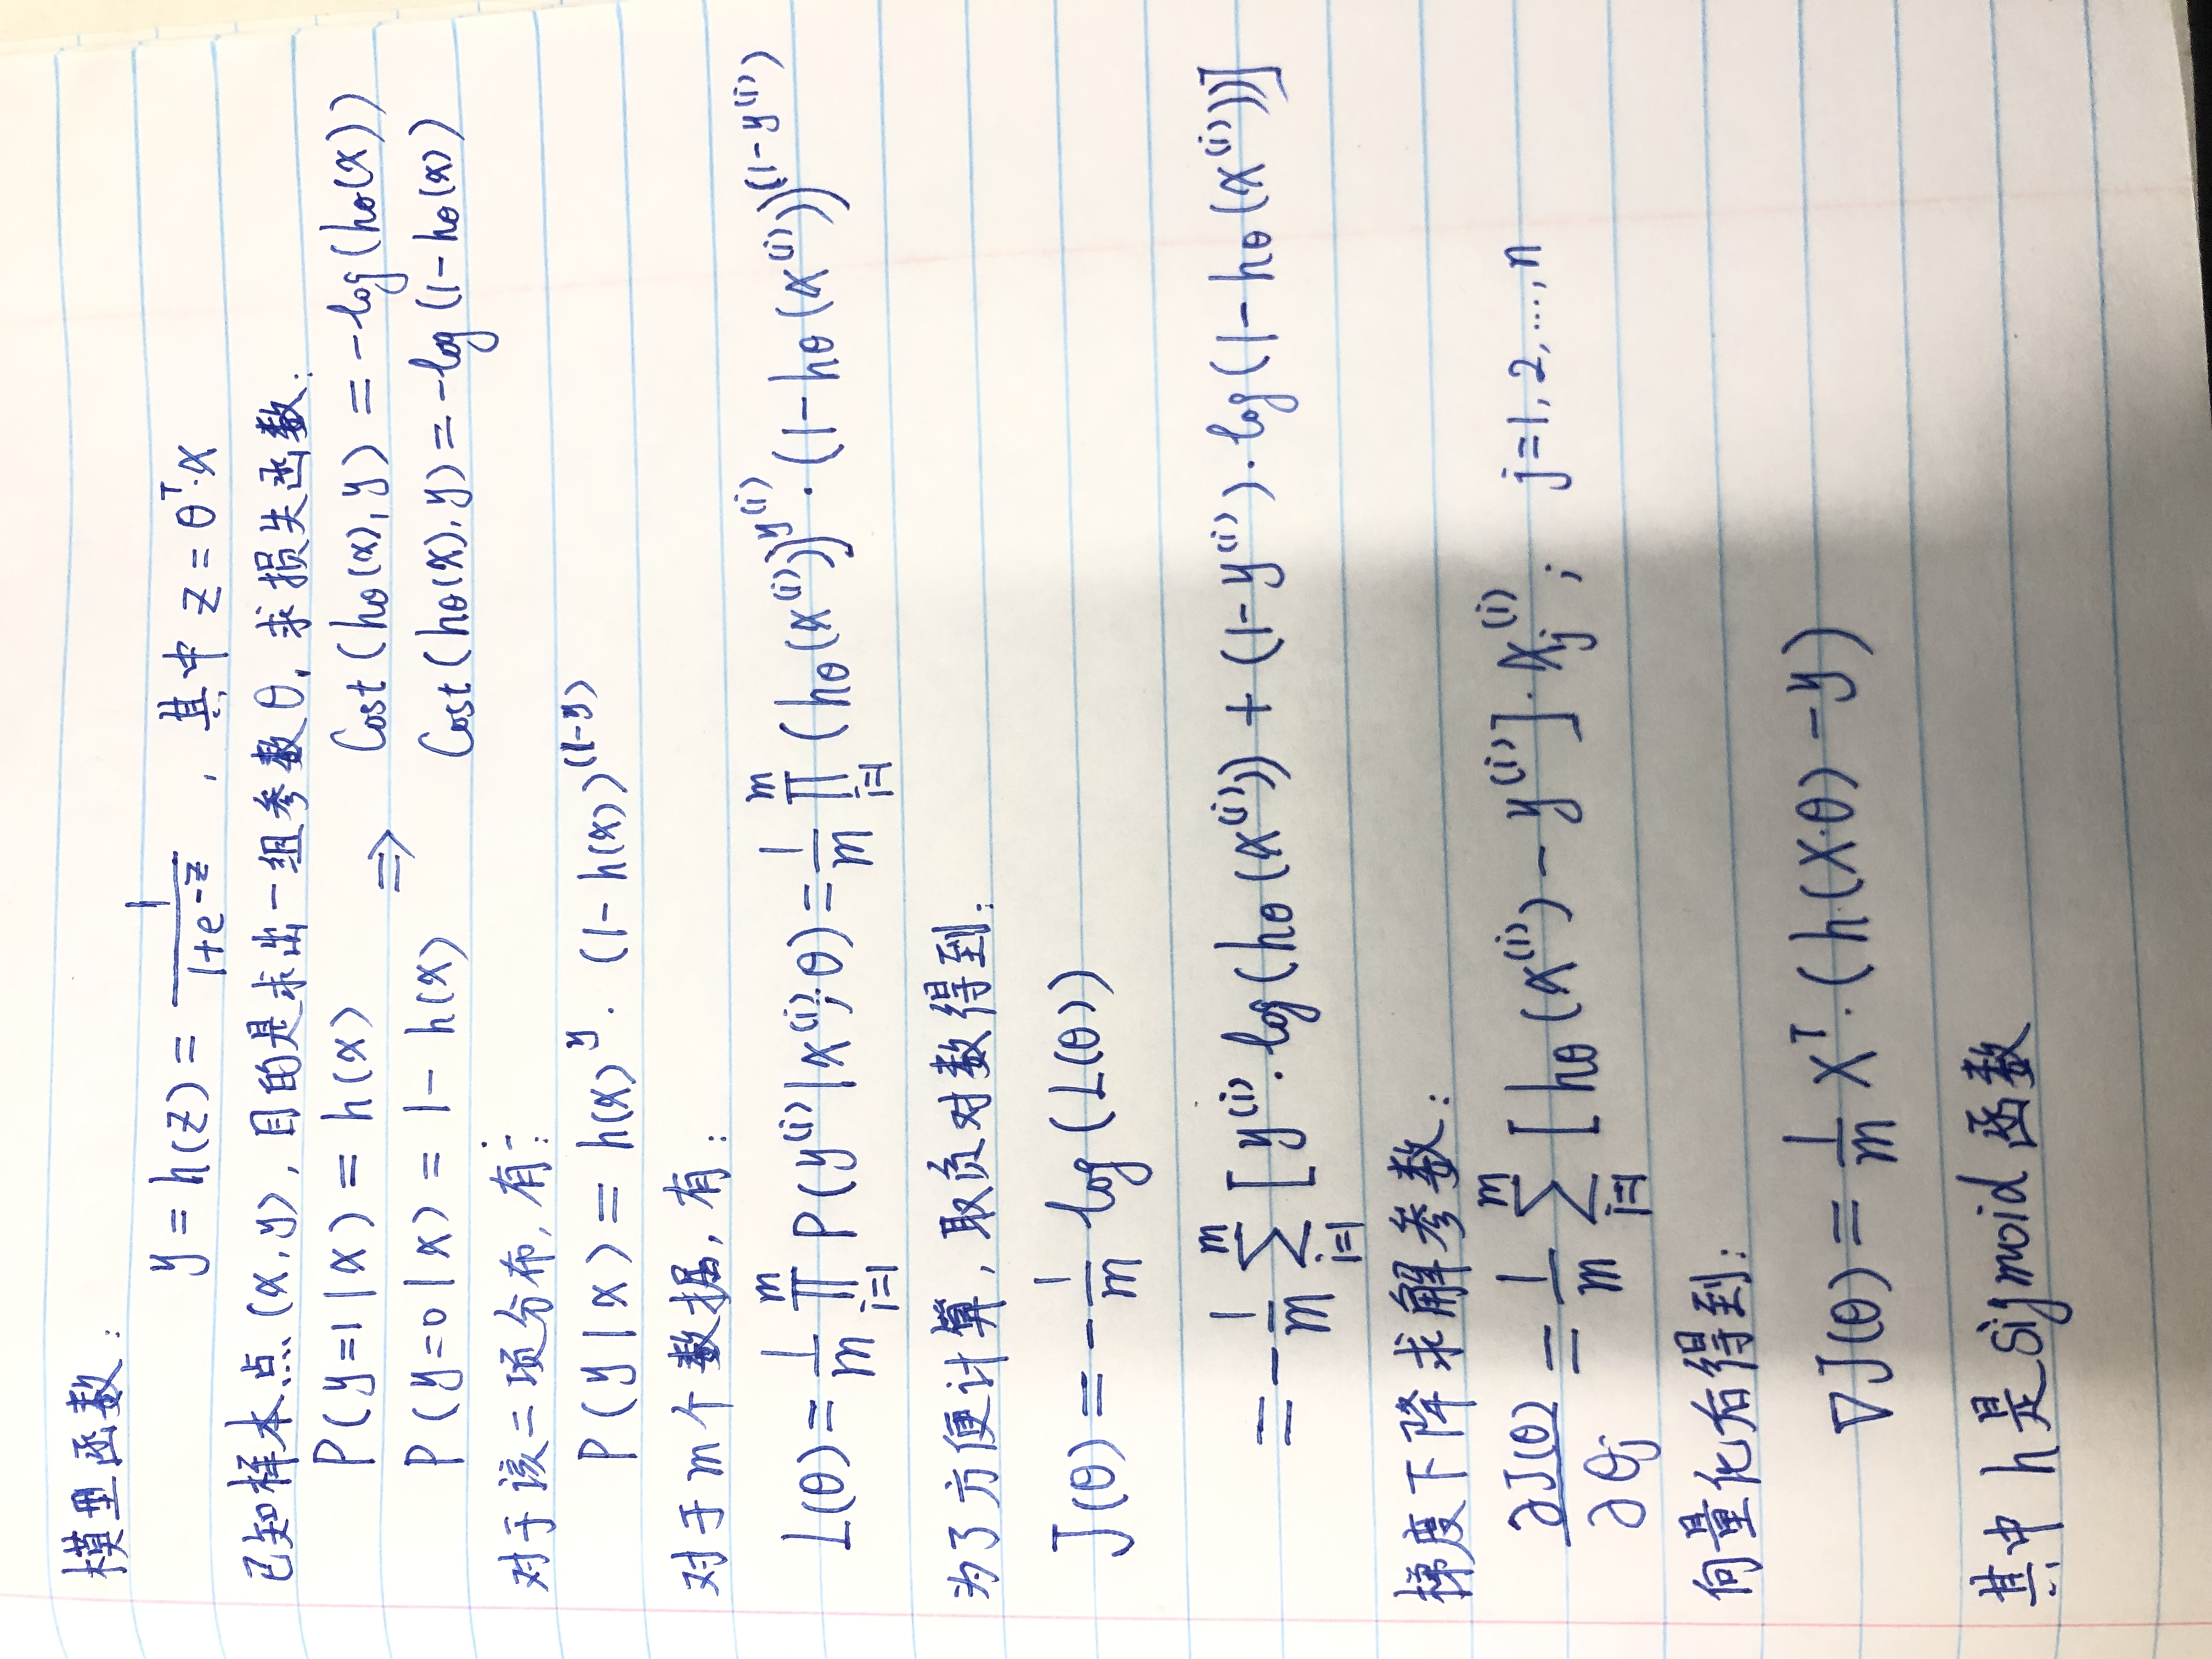 模型函数：
y = h(z) = 1/(1+e^-z)，其中 z = θ^T·x
已知样本点(x,y)，目的是求出一组参数θ，求损失函数：
P(y=1|x) = h(x) ⇒ Cost(hθ(x), y) = -log(hθ(x))
P(y=0|x) = 1 - h(x) Cost(hθ(x), y) = -log(1-hθ(x))
对于该二项分布，有：
P(y|x) = h(x)^y · (1-h(x))^(1-y)
对于m个数据，有：
L(θ) = 1/m ∏_{i=1}^{m} P(y^(i)|x^(i);θ) = 1/m ∏_{i=1}^{m} (hθ(x^(i)))^y^(i) · (1-hθ(x^(i)))^(1-y^(i))
为了方便计算，取负对数得到：
J(θ) = -1/m log(L(θ))
= -1/m ∑_{i=1}^{m} [y^(i)·log(hθ(x^(i))) + (1-y^(i))·log(1-hθ(x^(i)))]
梯度下降求解参数：
∂J(θ)/∂θj = 1/m ∑_{i=1}^{m} [hθ(x^(i)) - y^(i)]·xj^(i)； j=1,2,...,n
向量化后得到：
∇J(θ) = 1/m X^T·(h(X·θ) - y)
其中 h是sigmoid函数